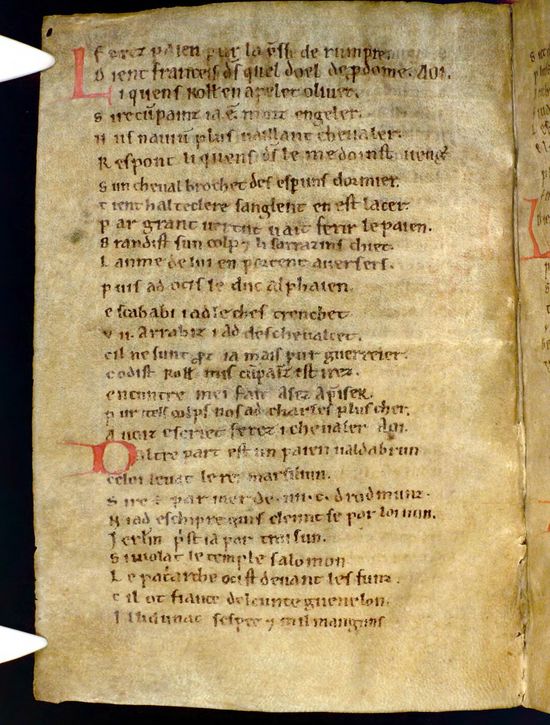 Ferez paien pur la p͛sse de rumpre.
Dient franceis d͛s quel doel de p̱dome. Aoi.
Li quens Roll̄ en apelet oliver.
Sire cūpainz ia ē. morz engeler.
Nus naviūm plus vaillant chevaler.
Respont li quens d͛s le me doinst veng͛
Sun cheval brochet des espuns dormier.
Tient halteclere sanglent en est lacer.
Par grant vertut vait ferir le paien.
Brandist sun colp ⁊ li sarrazins chiet.
Lanme de lui en portent aversers.
puis ad ocis le duc alphaien
escababi i ad le chef trenchet
vii. Arrabiz i ad deschevalcet.
cil ne sunt ꝓz ia mais pur guerreier.
co dist Roll̄ mis cūpainz est irez.
encuntre mei fait asez ap͛iser.
pur itels colps nos ad charles plus cher.
A voiz escriet ferez i chevaler Aoi.
Daltre part est un paien valdabrun
celoi levat le rei marsiliun.
Sire ē par mer de .iiii. c. drodmunz.
Ni ad eschipre quis cleimt se par loi nun.
Ierl̄m p͛st ia par traisun.
Si violat le temple salomon
Le patarche ocist devant les funz.
cil ot fiance del cunte guenelon.
Il li dunat sespee ⁊ mil manguns